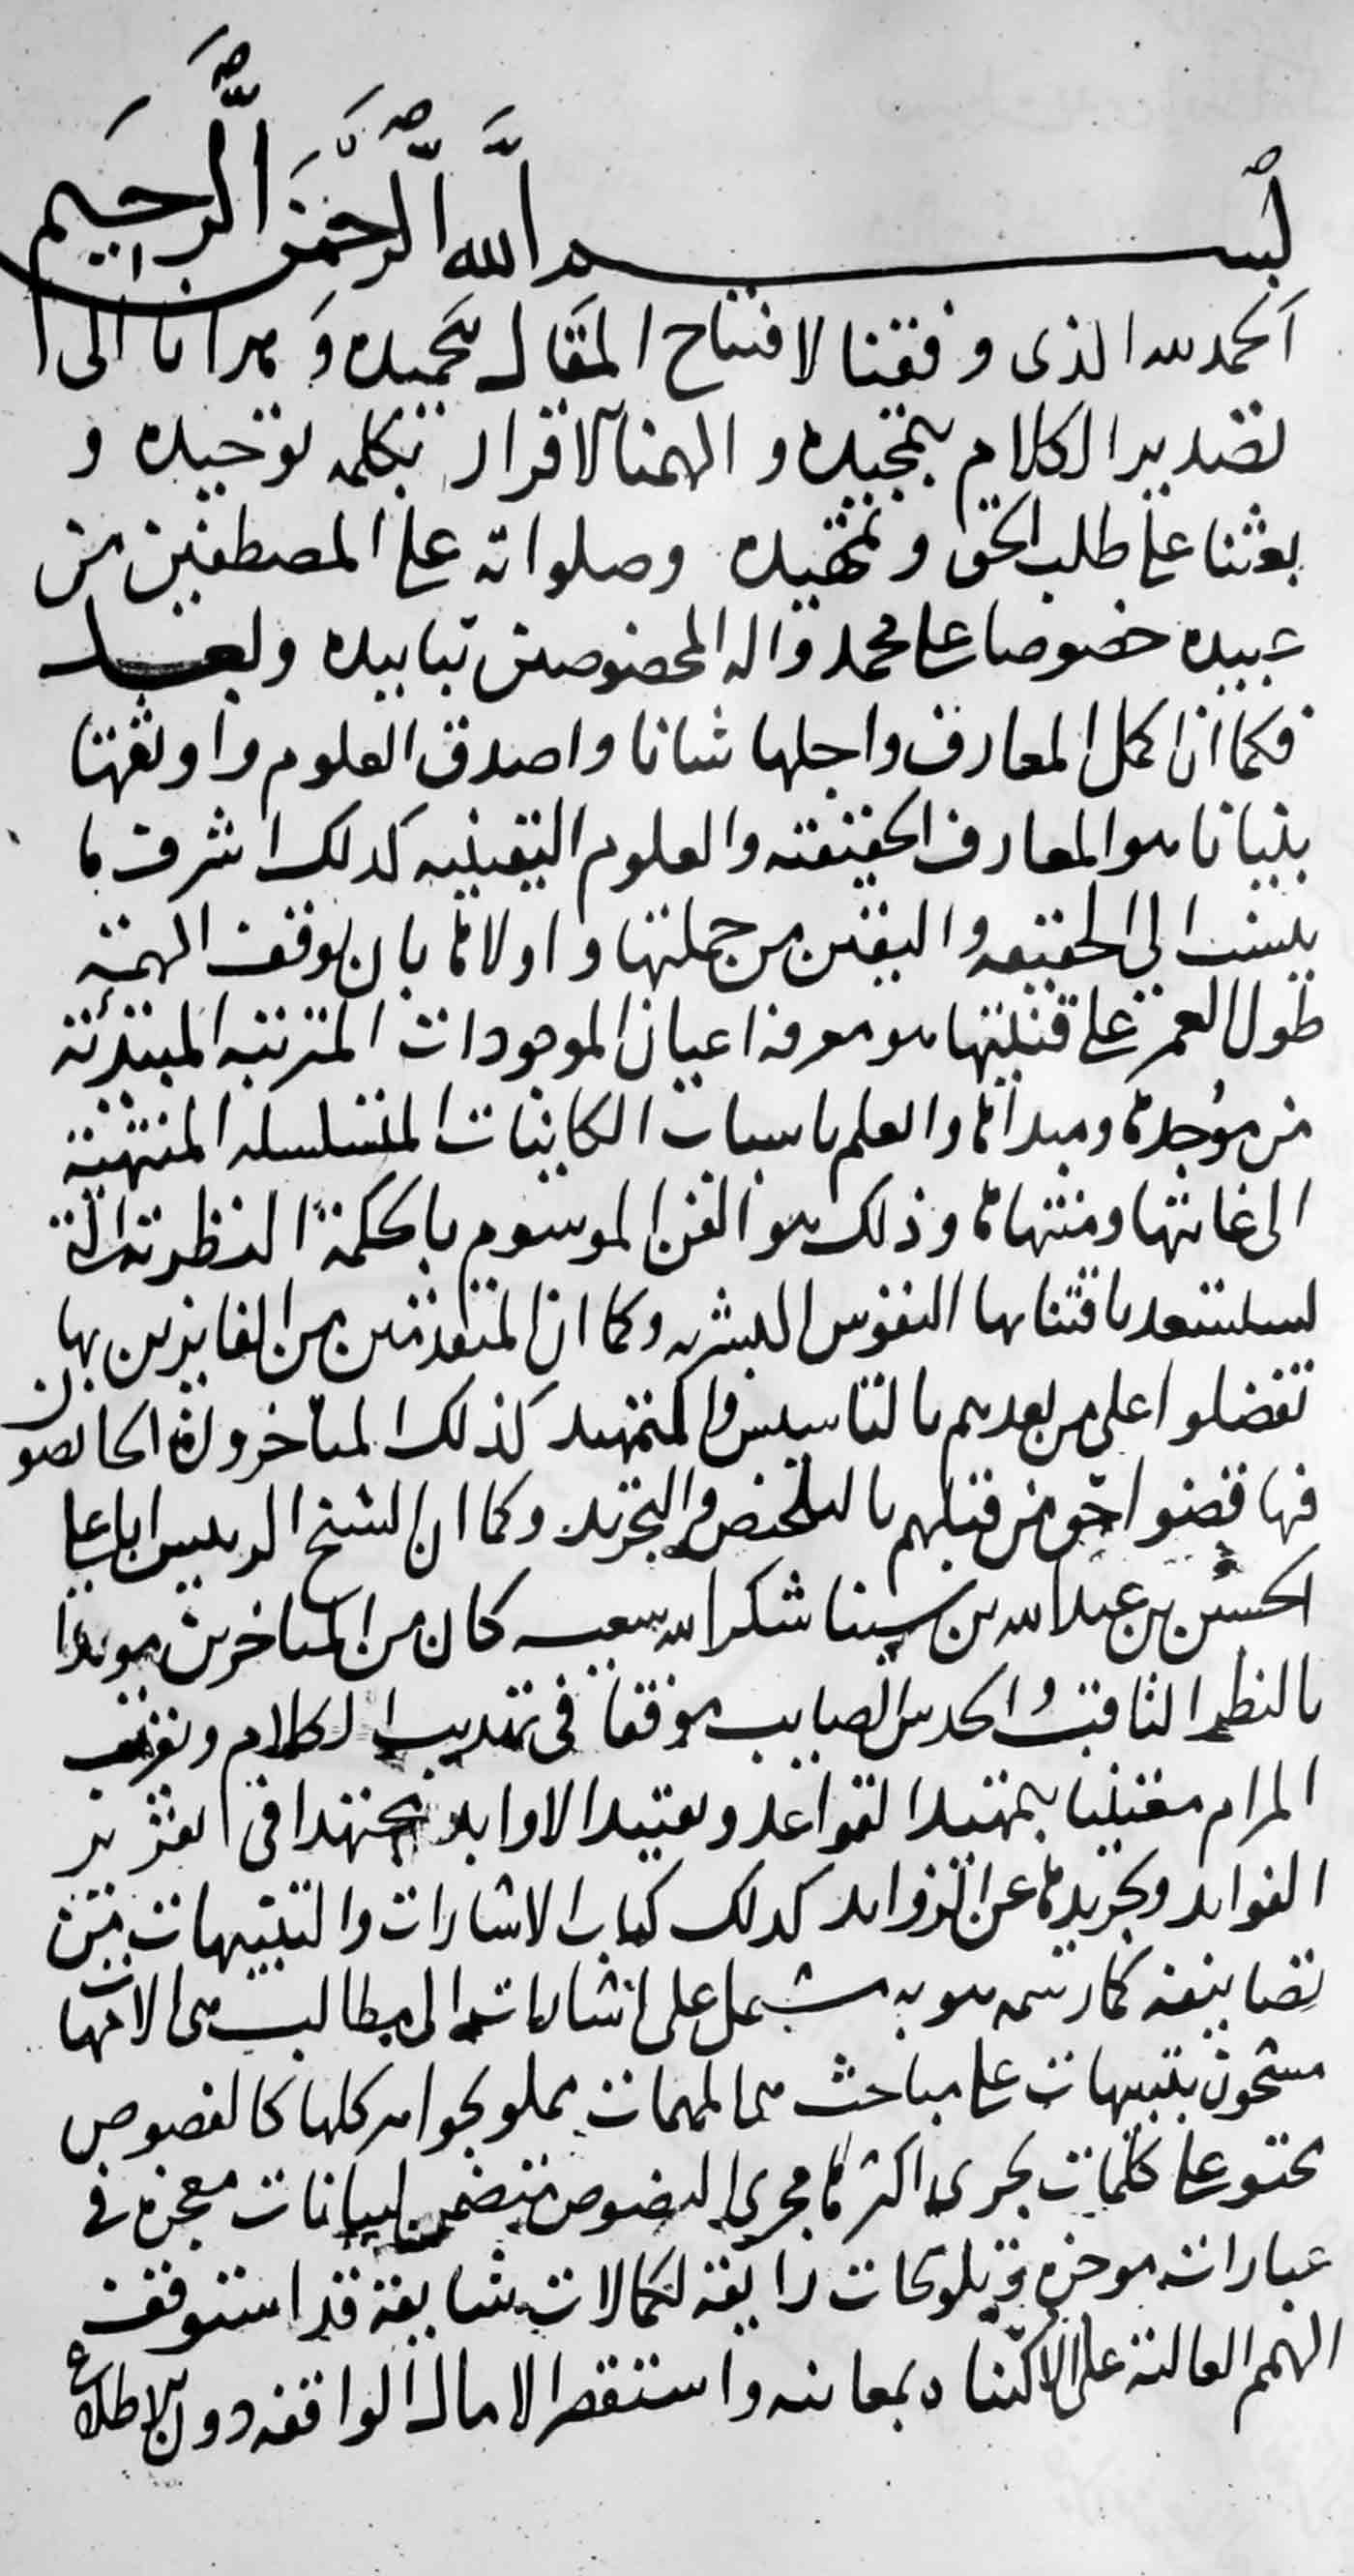 بسم الله الرحمن الرحيم
الحمد لله الذى وفقنا لافتتاح المقال بتحميده و هدانا الى ا
تصدير الكلام بتمجيده و الهمنا الاقرار بكلمه توحيده و
بعثنا على طلب الحق و تمهيده وصلواته على المصطفين من
عبيده خصوصا على محمد واله المخصوصين بتابيده وبعد
فكما ان اكمل المعارف واجلها شانا واصدق العلوم واوثقها
بنيانا هو المعارف الحقيقيه والعلوم اليقينيه كذلك اشرف ما
ينسب الى الحقيقه و اليقين من جملتها واولاها بان يوقف الهمة
طول العمر على قنيتها هو معرفه اعيان الموجودات المترتبه المبتدئة
من موجدها ومبداها والعلم باسباب الكاينات المتسلسله المنتهية
الى غايتها ومنتهاها وذلك هو الفن الموسوم بالحكمة النظرية التى
يستعد باقتنايها النفوس البشريه وكما ان المتقدمين من الفايزين بها
تفضلوا على من بعدهم بالتاسيس والتمهيد كذلك المتاخرون الخايضون
فيها قضوا حق من قبلهم بالتلخيص والتجريد وكما ان الشيخ الرييس ابا على
الحسين بن عبد الله بن سينا شكر الله سعيه كان من المتاخرين مويدا
بالنظر الثاقب والحدس الصايب موفقا فى تهذيب الكلام وتقريب
المرام معتنيا بتمهيد القواعد وتقييد الاوابد مجتهدا فى تقرير
الفوايد وتجريدها عن الزوايد كذلك كتاب الاشارات والتنبيهات من
تصانيفه كما وسمه هو به مشتمل على اشارات الى مطالب هى الامهات
مشحون بتنبيهات على مباحث هى المهمات مملو بجواهر كلها كالفصوص
محتو على كلمات يجرى اكثرها مجرى النصوص متضمن لبيانات معجزة فى
عبارات موجزه وتلويحات رايقة لكمالات شايقة قد استوقف
الهمم العالية على الاكتناه بمعانيه واستقصر الامال الوافقه دون الاطلاع